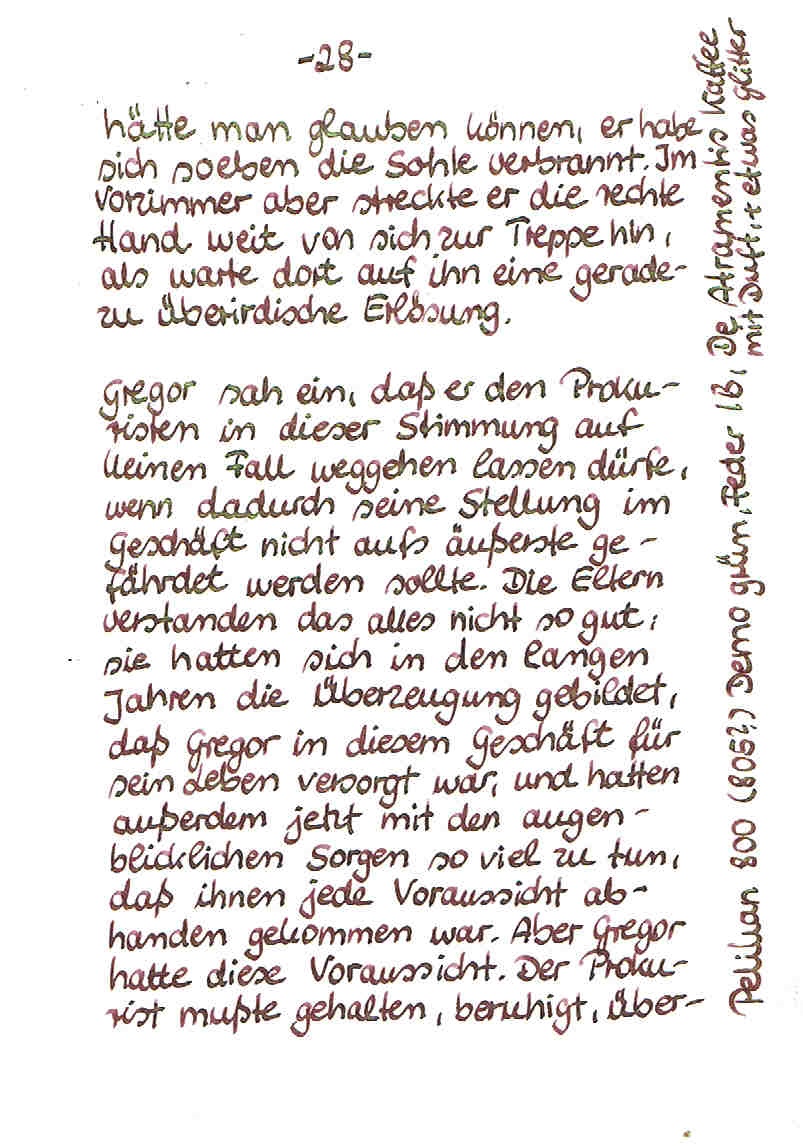 -28-
hätte man glauben können, er habe
sich soeben die Sohle verbrannt. Im
Vorzimmer aber streckte er die rechte
Hand weit von sich zur Treppe hin,
als warte dort auf ihn eine gerade-
zu überirdische Erlösung.
Gregor sah ein, daß er den Proku-
risten in dieser Stimmung auf
keinen Fall weggehen lassen dürfe,
wenn dadurch seine Stellung im
Geschäft nicht aufs äußerste ge-
fährdet werden sollte. Die Eltern
verstanden das alles nicht so gut;
sie hatten sich in den langen
Jahren die Überzeugung gebildet,
daß Gregor in diesem Geschäft für
sein Leben versorgt war, und hatten
außerdem jetzt mit den augen-
blicklichen Sorgen so viel zu tun,
daß ihnen jede Voraussicht ab-
handen gekommen war. Aber Gregor
hatte diese Voraussicht. Der Proku-
rist mußte gehalten, beruhigt, über-
Pelikan 800 (805?) Demo grün, Feder IB, De Atramentis Kaffee
mit Duft, + etwas Glitter